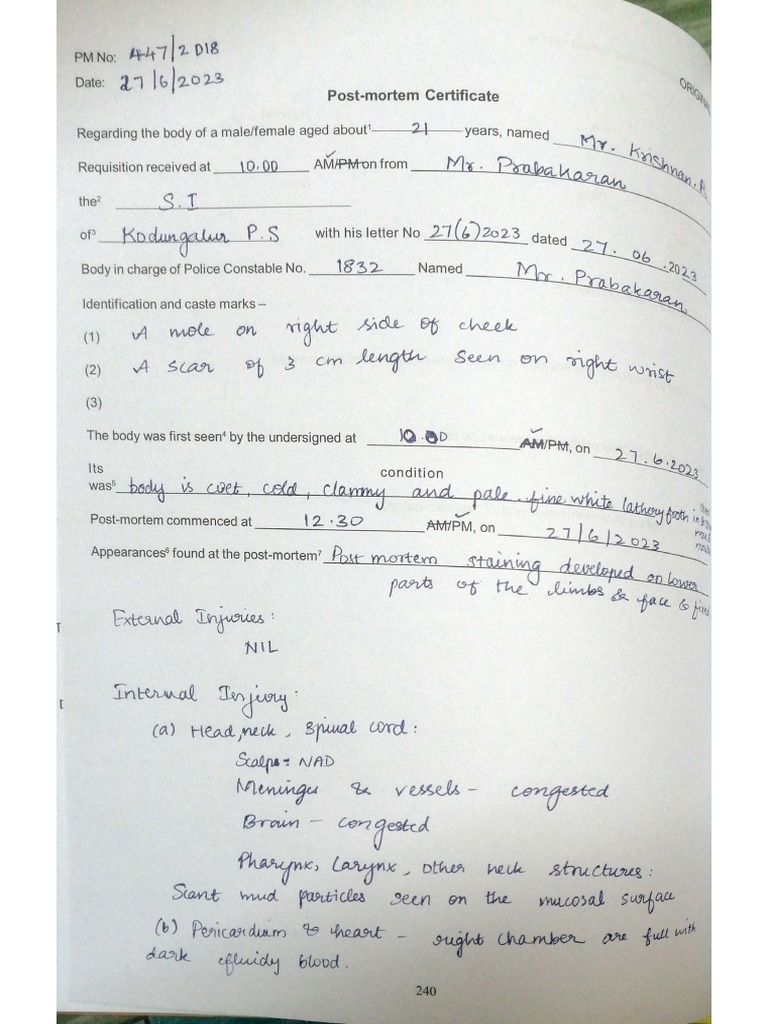 PM No: 447/2018
Date: 27/6/2023
ORIGINAL
Post-mortem Certificate
Regarding the body of a male/female aged about¹ 21 years, named Mr. Krishnan.
Requisition received at 10.00 AM/PM on from Mr. Prabakaran
the² S.I
of³ Kodungalur P.S with his letter No 27(6)2023 dated 27.06.2023
Body in charge of Police Constable No. 1832 Named Mr. Prabakaran.
Identification and caste marks –
(1) A mole on right side of cheek
(2) A scar of 3 cm length seen on right wrist
(3)
The body was first seen⁴ by the undersigned at 10.00 AM/PM, on 27.6.2023
Its condition
was⁵ body is wet, cold, clammy and pale. fine white lathery froth
Post-mortem commenced at 12.30 AM/PM, on 27/6/2023
Appearances⁶ found at the post-mortem⁷ Post mortem staining developed on lower
parts of the limbs & face &
External Injuries:
NIL
Internal Injury:
(a) Head, neck, Spinal cord:
Scalp = NAD
Meninges & vessels - congested
Brain - congested
Pharynx, Larynx, other neck structures:
Scant mud particles seen on the mucosal surface
(b) Pericardium & heart - right chamber are full with
dark efluidy blood.
240